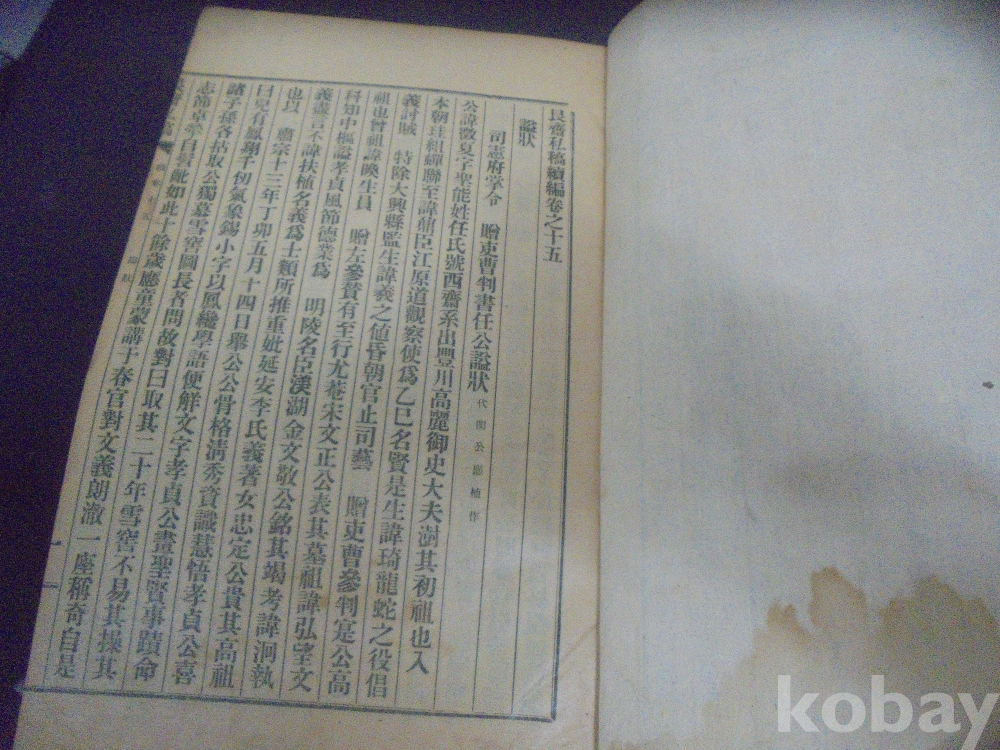 艮齋私稿續編卷之十五
諡狀
司憲府掌令 贈吏曹判書任公諡狀
公諱徵夏字聖能姓任氏號西齋系出豐川高麗御史大夫澍其初祖也入
本朝珪組蟬聯至諱鼐臣江原道觀察使爲乙巳名賢是生諱琦龍蛇之役倡
義討賊 特除大興縣監生諱羲之値昏朝官止司藝 贈吏曹參判寔公高
祖也曾祖諱㬇生員 贈左參贊有至行尤菴宋文正公表其墓祖諱弘望文
科知中樞諡孝貞風節德業爲 明陵名臣渼湖金文敬公銘其碣考諱泂執
義盡言不諱扶植名義爲士類所推重妣延安李氏義著女忠定公貴其高祖
也以 肅宗十三年丁卯五月十四日擧公公骨格淸秀資識慧悟孝貞公喜
曰兒有鳳翔千仞氣象錫小字以鳳纔學語便解文字孝貞公畫聖賢事蹟命
諸子孫各拈取公獨慕雪窖圖長者問故對曰取其二十年雪窖不易其操其
志節卓犖自髫齔如此十餘歲應童蒙講于春官對文義朗澈一座稱奇自是
kobay